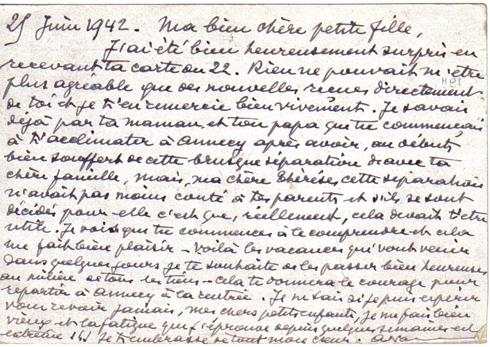 25 Juin 1942. Ma bien chère petite fille,
J'ai été bien heureusement surpris en
recevant ta carte du 22. Rien ne pouvait m'être
plus agréable que des nouvelles reçues directement
de toi et je t'en remercie bien vivement. Je savais
déjà par ta maman et ton papa que tu commençais
à t'acclimater à Annecy après avoir, au début,
bien souffert de cette brusque séparation d'avec ta
chère famille, mais, ma chère Thérèse, cette séparation
n'avait pas moins coûté à tes parents et s'ils se sont
décidés pour elle c'est que, réellement, cela devait t'être
utile. Je vois que tu commences à le comprendre et cela
me fait bien plaisir - Voilà les vacances qui vont venir
dans quelques jours je te souhaite de les passer bien heureuses
au milieu de tous les tiens - cela te donnera le courage pour
repartir à Annecy à la rentrée. Je ne sais si je puis espérer
vous revoir jamais, mes chers petits enfants, je me fais bien
vieux et la fatigue que j'éprouve depuis quelques semaines est
extrême. Je t'embrasse de tout mon cœur.